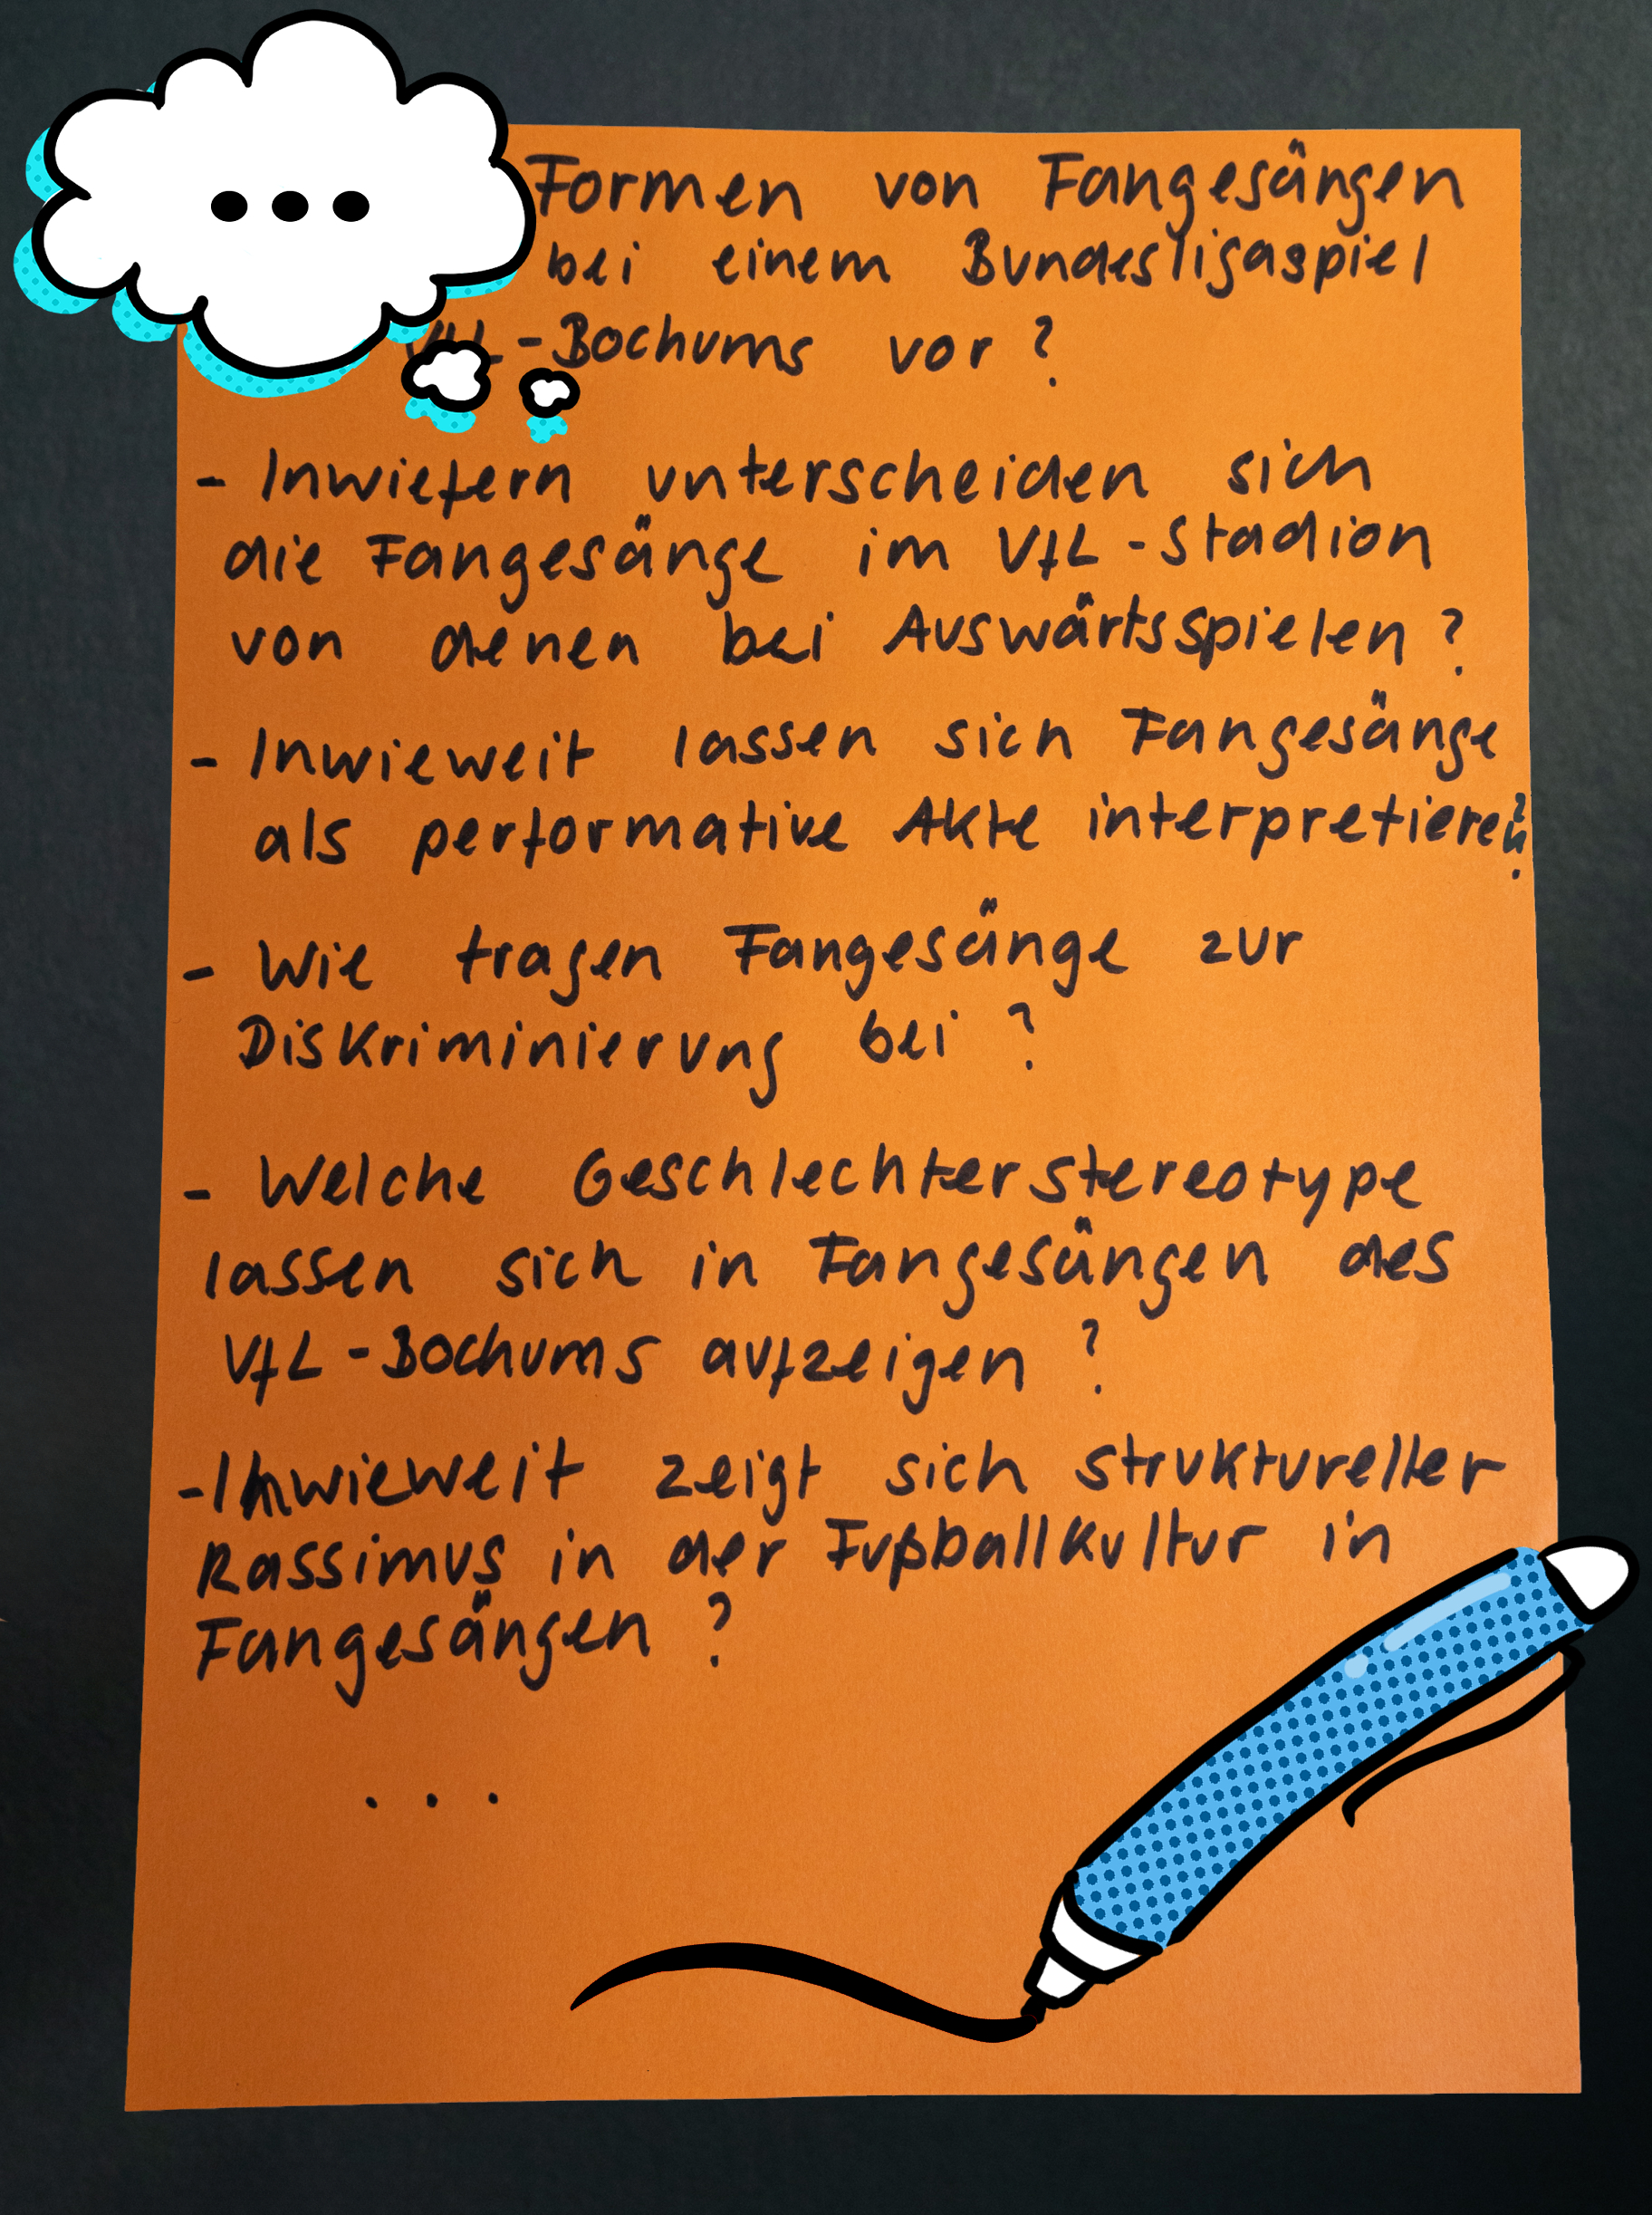 Formen von Fangesängen
bei einem Bundesligaspiel
VfL-Bochums vor?
- Inwiefern unterscheiden sich
die Fangesänge im VfL-Stadion
von denen bei Auswärtsspielen?
- Inwieweit lassen sich Fangesänge
als performative Akte interpretieren?
- Wie tragen Fangesänge zur
Diskriminierung bei?
- Welche Geschlechterstereotype
lassen sich in Fangesängen des
VfL-Bochums aufzeigen?
-Inwieweit zeigt sich struktureller
Rassimus in der Fußballkultur in
Fangesängen?
...